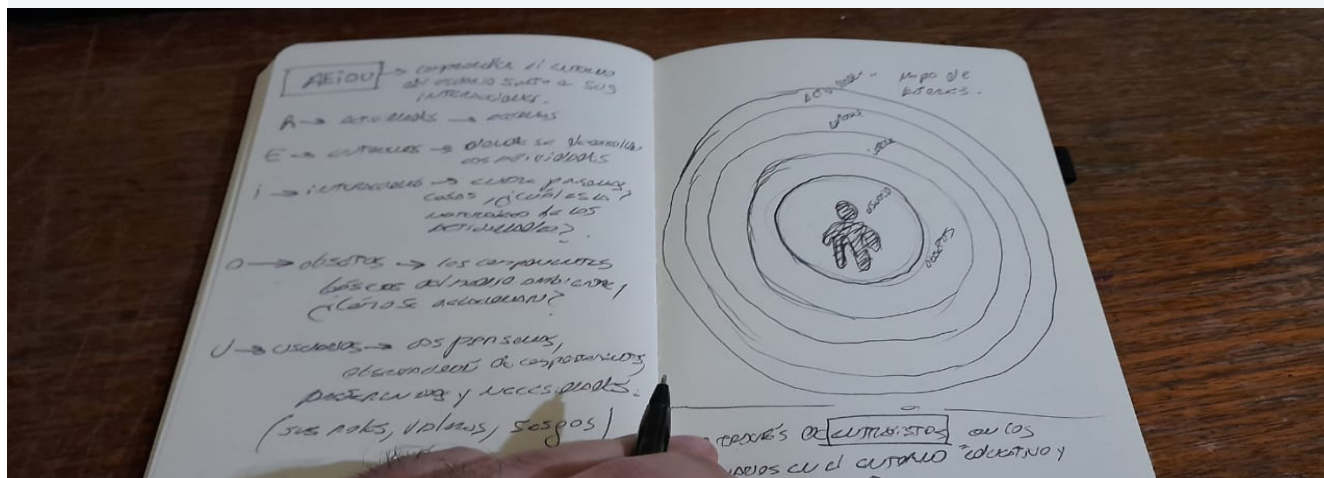 AEIOU → comprender el entorno
del usuario junto a sus
interacciones.
A → actividades →
E → entornos → donde se desarrollan
las actividades
i → interacciones → entre personas,
cosas, ¿cuál es la
naturaleza de las
actividades?
O → objetos → los componentes
básicos del medio ambiente,
¿cómo se relacionan?
U → usuarios → las personas,
observando de comportamientos,
preferencias y necesidades.
(sus roles, valores, sesgos)
Mapa de
usuario
objetos
través de entrevistas en los
en el entorno educativo y